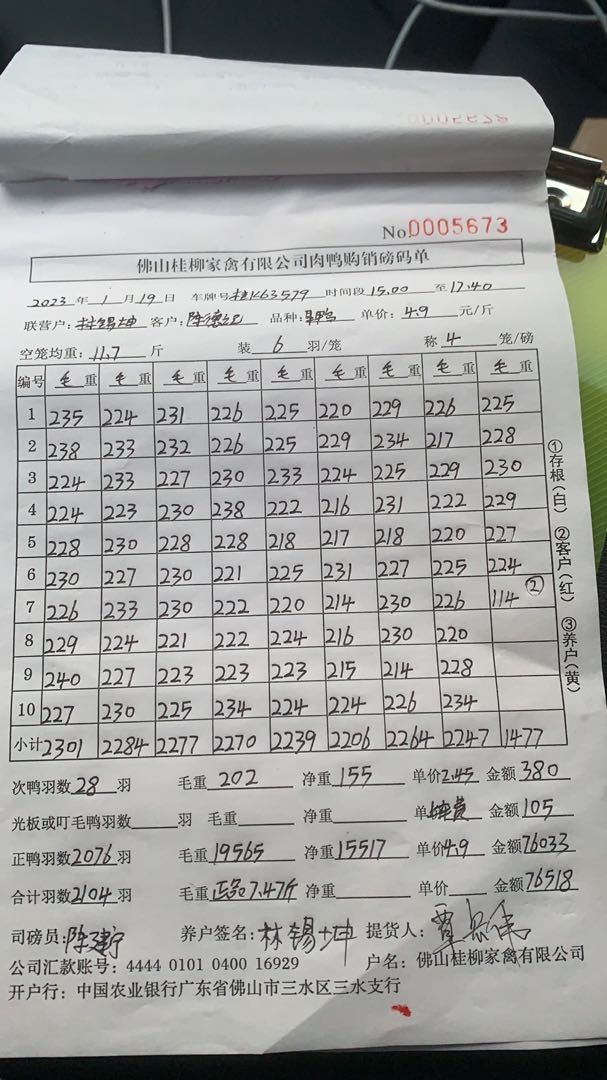 No.0005673
佛山桂柳家禽有限公司肉鸭购销磅码单
2023年1月19日 车牌号桂K63579 时间段15.00至17.40
联营户:林锡坤 客户:陈德记 品种: 单价:4.9元/斤
空笼均重:11.7斤 装6羽/笼 称4笼/磅
编号 毛重 毛重 毛重 毛重 毛重 毛重 毛重 毛重 毛重
1 235 224 231 226 225 220 229 226 225
2 238 233 232 226 225 229 234 217 228
3 224 233 227 230 233 224 225 229 230
4 224 223 230 238 222 216 231 222 229
5 228 230 228 228 218 217 218 220 227
6 230 227 230 221 225 231 227 225 224
7 226 233 230 222 220 214 230 226 114 ②
8 229 224 221 222 224 216 230 220
9 240 227 223 223 223 215 214 228
10 227 230 225 234 224 224 226 234
小计 2301 2284 2277 2270 2239 2206 2264 2247 1477
①存根(白) ②客户(红) ③养户(黄)
次鸭羽数28羽 毛重202 净重155 单价2.45 金额380
光板或叮毛鸭羽数 羽 毛重 净重 单 金额105
正鸭羽数2076羽 毛重19565 净重15517 单价4.9 金额76033
合计羽数2104羽 毛重正多7.47斤 净重 单价 金额76518
司磅员: 养户签名:林锡坤 提货人:
公司汇款账号:4444 0101 0400 16929 户名:佛山桂柳家禽有限公司
开户行:中国农业银行广东省佛山市三水区三水支行